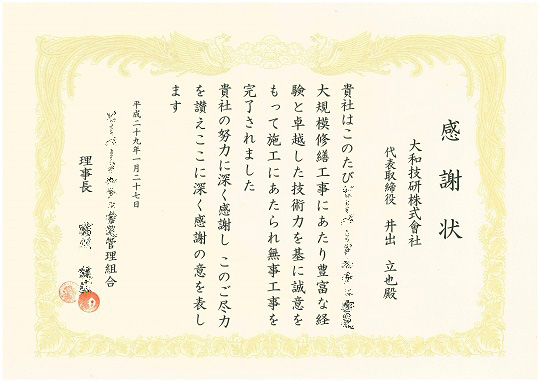 感謝状
大和技研株式會社
代表取締役 井出 立也殿
貴社はこのたび
大規模修繕工事にあたり豊富な経
験と卓越した技術力を基に誠意を
もって施工にあたられ無事工事を
完了されました
貴社の努力に深く感謝し このご尽力
を讃えここに深く感謝の意を表し
ます
平成二十九年一月二十七日
管理組合
理事長